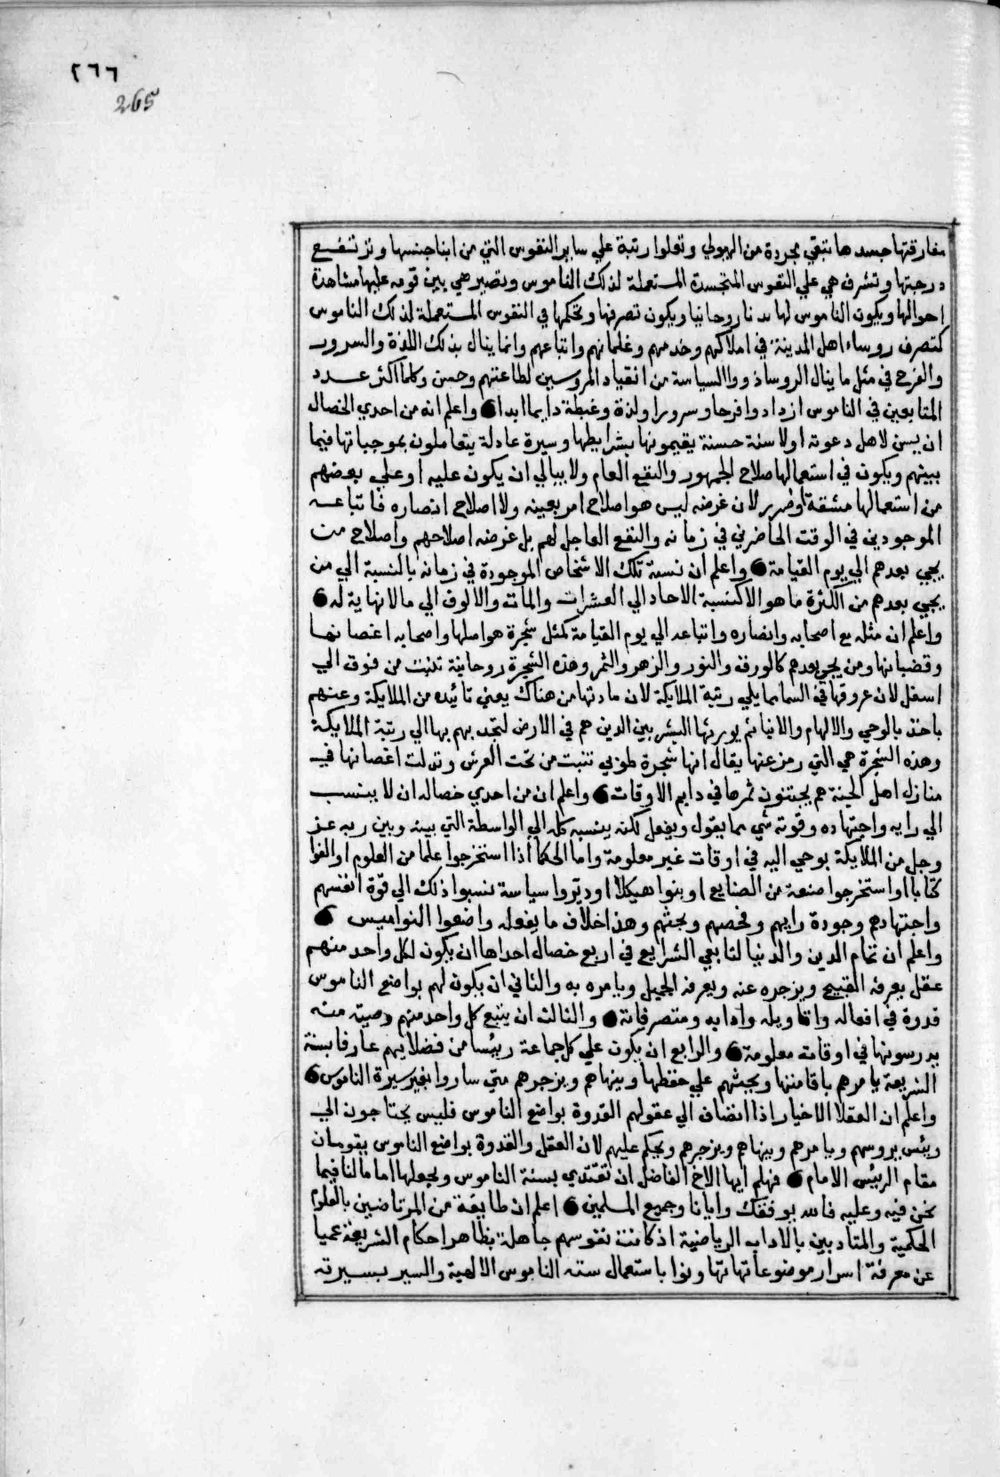 ٢٦٦
265
مفارقتها جسدها تبقي مجردة من الهيولي وتعلوا رتبة علي ساير النفوس التي من ابنا جنسها وترتفع
درجتها وتشرف هي علي النفوس المتجسدة المستعملة لذلك الناموس وتصير هي بين قومه عليها مشاهدة
احوالها ويكون الناموس لها بدنا روحانيا ويكون تصرفها وتحكمها في النفوس المستعملة لذلك الناموس
كتصرف روساء اهل المدينة في املاكهم وخدمهم وغلمانهم واتباعهم وانما ينال بذلك اللذة والسرور
والفرح في مثل ما ينال الروسا ذووا السياسة من انقياد المروسين لطاعتهم وحسن وكلما اكثر عدد
المتابعين في الناموس ازدادوا فرحا وسرورا ولذة وغبطة دايما ابدا واعلم انه من احدي الخصال
ان يسن لاهل دعوته اولا سنة حسنة يقيمونها بشرايطها وسيرة عادلة يتعاملون بموجباتها فيما
بينهم ويكون في استعمالها صلاح الجمهور والنفع العام ولا يبالي ان يكون عليه او علي بعضهم
من استعمالها مشقة او ضرر لان غرضه ليس هو اصلاح امر بعينه ولا اصلاح انصاره فاتباعه
الموجودين في الوقت الحاضر في زمانه والنفع العاجل لهم بل غرضه اصلاحهم واصلاح من
يجي بعدهم الي يوم القيامة واعلم ان نسبة تلك الاشخاص الموجودة في زمانه بالنسبة الي من
يجي بعدهم من الكثرة ما هو الا كنسبة الاحاد الي العشرات والمات والالوف الي ما لا نهاية له
واعلم ان مثله مع اصحابه وانصاره واتباعه الي يوم القيامة كمثل شجرة هو اصلها واصحابه اغصانها
وقضبانها ومن يجي بعدهم كالورق والنور والزهر والثمر وهذه الشجرة روحانية تنبت من فوق الي
اسفل لان عروقها في السما مما يلي رتبة الملايكة لان مادتها من هناك يعني تائيده من الملايكة وعنهم
ياخذ بالوحي والالهام والانبا ثم يورثها البشريين الذين هم في الارض لتجذبهم بها الي رتبة الملايكة
وهذه الشجرة هي التي رمز عنها يقال انها شجرة طوبي تنبت من تحت العرش وتدلت اغصانها في
منازل اهل الجنة هم يجتنون ثمرها في دايم الاوقات واعلم ان من احدي خصاله ان لا ينسب
الي رايه واجتهاده وقوته شي مما يقول ويفعل لكنه ينسبه كله الي الواسطة التي بينه وبين ربه عز
وجل من الملايكة يوحي اليه في اوقات غير معلومة واما الحكما اذا استخرجوا علما من العلوم او الفوا
كتابا او استخرجوا صنعة من الصنايع او بنوا هيكلا او دبروا سياسة نسبوا ذلك الي قوة انفسهم
واجتهادهم وجودة رايهم وفحصهم وبحثهم وهذا خلاف ما يفعله واضعوا النواميس
واعلم ان تمام الدين والدنيا لتابعي الشرايع في اربع خصال احداها ان يكون لكل واحد منهم
عقل يعرفه القبيح ويزجره عنه ويعرفه الجميل ويامره به والثاني ان يكون لهم بواضع الناموس
قدرة في افعاله واقاويله وادابه ومتصرفاته والثالث ان يتبع كل واحد منهم وصيته منه
يدرسونها في اوقات معلومة والرابع ان يكون علي كل جماعة رييسا من فضلايهم عارفا بسنة
الشريعة يامرهم باقامتها ويحثهم علي حفظها وينهاهم ويزجرهم متي ساروا بغير سيرة الناموس
واعلم ان العقلا الاخيار اذا انضاف الي عقولهم القدوة بواضع الناموس فليس يحتاجون الي
رييس يروسهم ويامرهم وينهاهم ويزجرهم ويحكم عليهم لان العقل والقدوة بواضع الناموس يقومان
مقام الرييس الامام فهلم ايها الاخ الفاضل ان تقتدي بسنة الناموس وتجعلها اماما لنا فيما
نحن فيه وعليه فالله يوفقك وايانا وجميع المسلمين اعلم ان طايفة من المرتاضين بالعلوم
الحكمية والمتادبين بالاداب الرياضية اذ كانت نفوسهم جاهلة بظاهر احكام الشريعة عميا
عن معرفة اسرار موضوعاتها تهاونوا باستعمال سنه الناموس الالهية والسير بسيرته